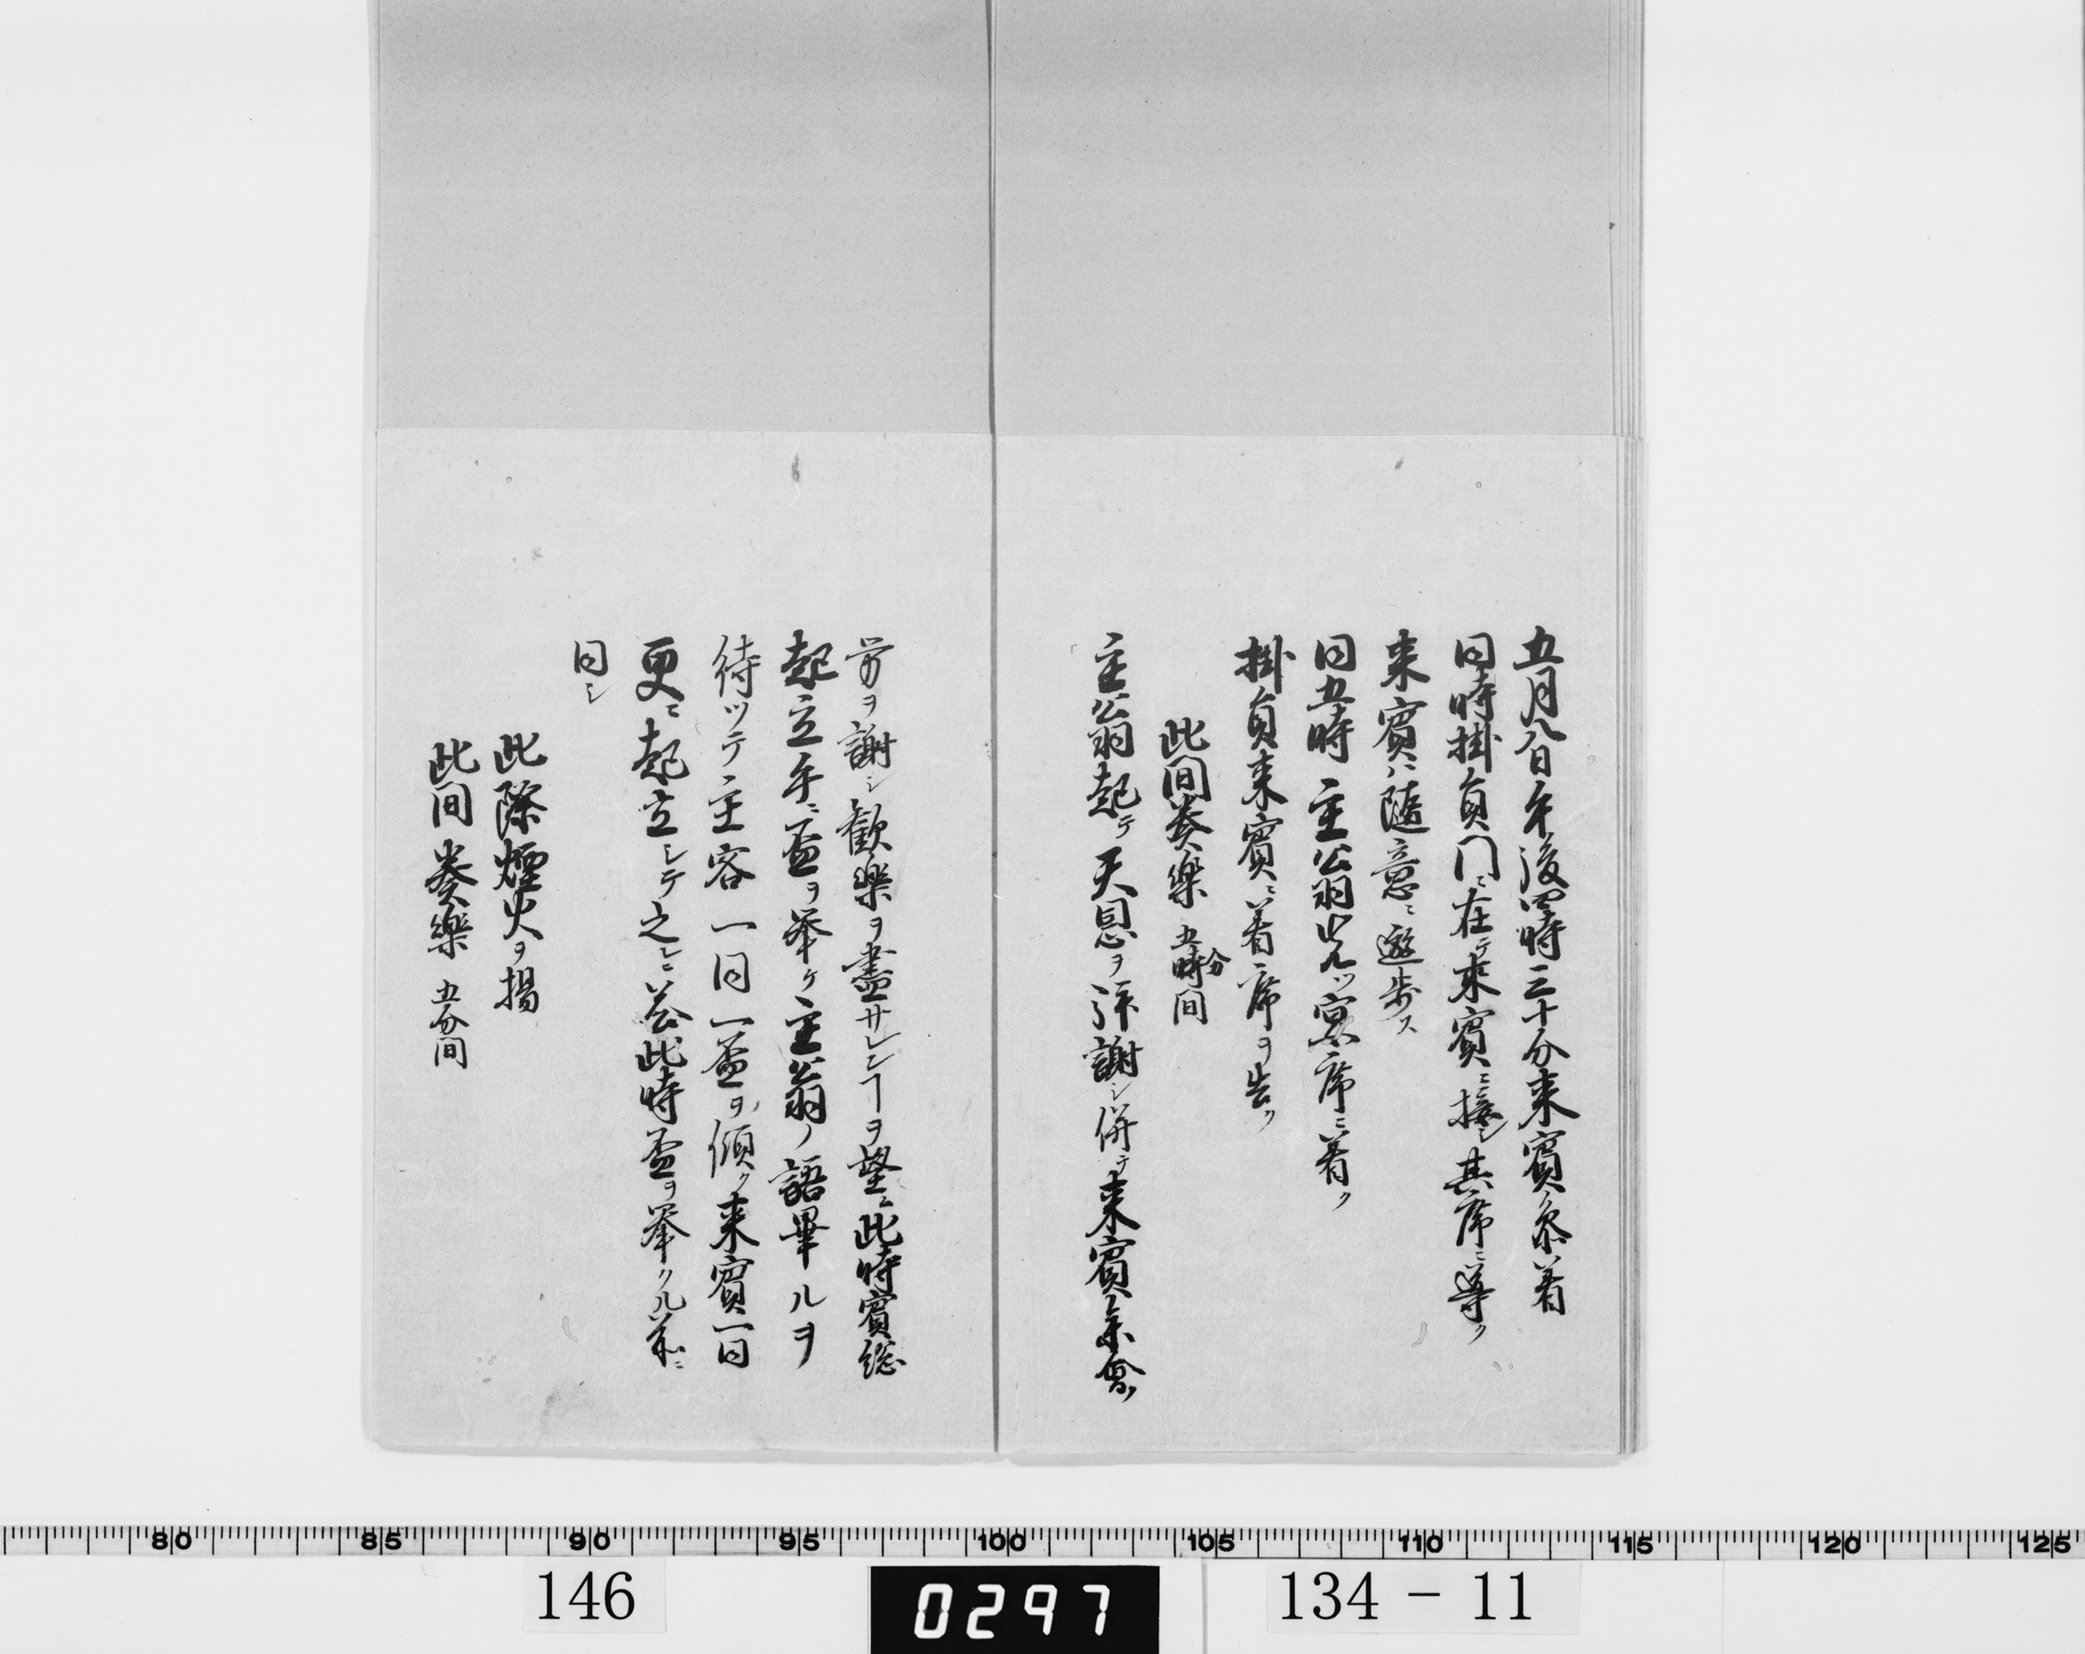 五月八日午後四時三十分来賓参着
同時掛員門ニ在テ来賓ニ接シ其席ニ導ク
来賓ハ随意ニ遊歩ス
同五時主公翁出ツ賓席ニ着ク
掛員来賓ニ着席ヲ告ク
此間奏楽 五分時間
主公翁起テ天恩ヲ拝謝シ併テ来賓来会ノ
労ヲ謝シ歓楽ヲ盡サレンヿヲ望ム此時賓総
起立手ニ盃ヲ挙ケ主公翁ノ語畢ルヲ
待ツテ主客一同一盃ヲ傾ク来賓一同
更ニ起立シテ之レニ答此時盃ヲ挙クル前ニ
同シ
此際煙火ヲ揚
此間奏楽 五分間
80 85 90 95 100 105 110 115 120 125
146
0297
134-11